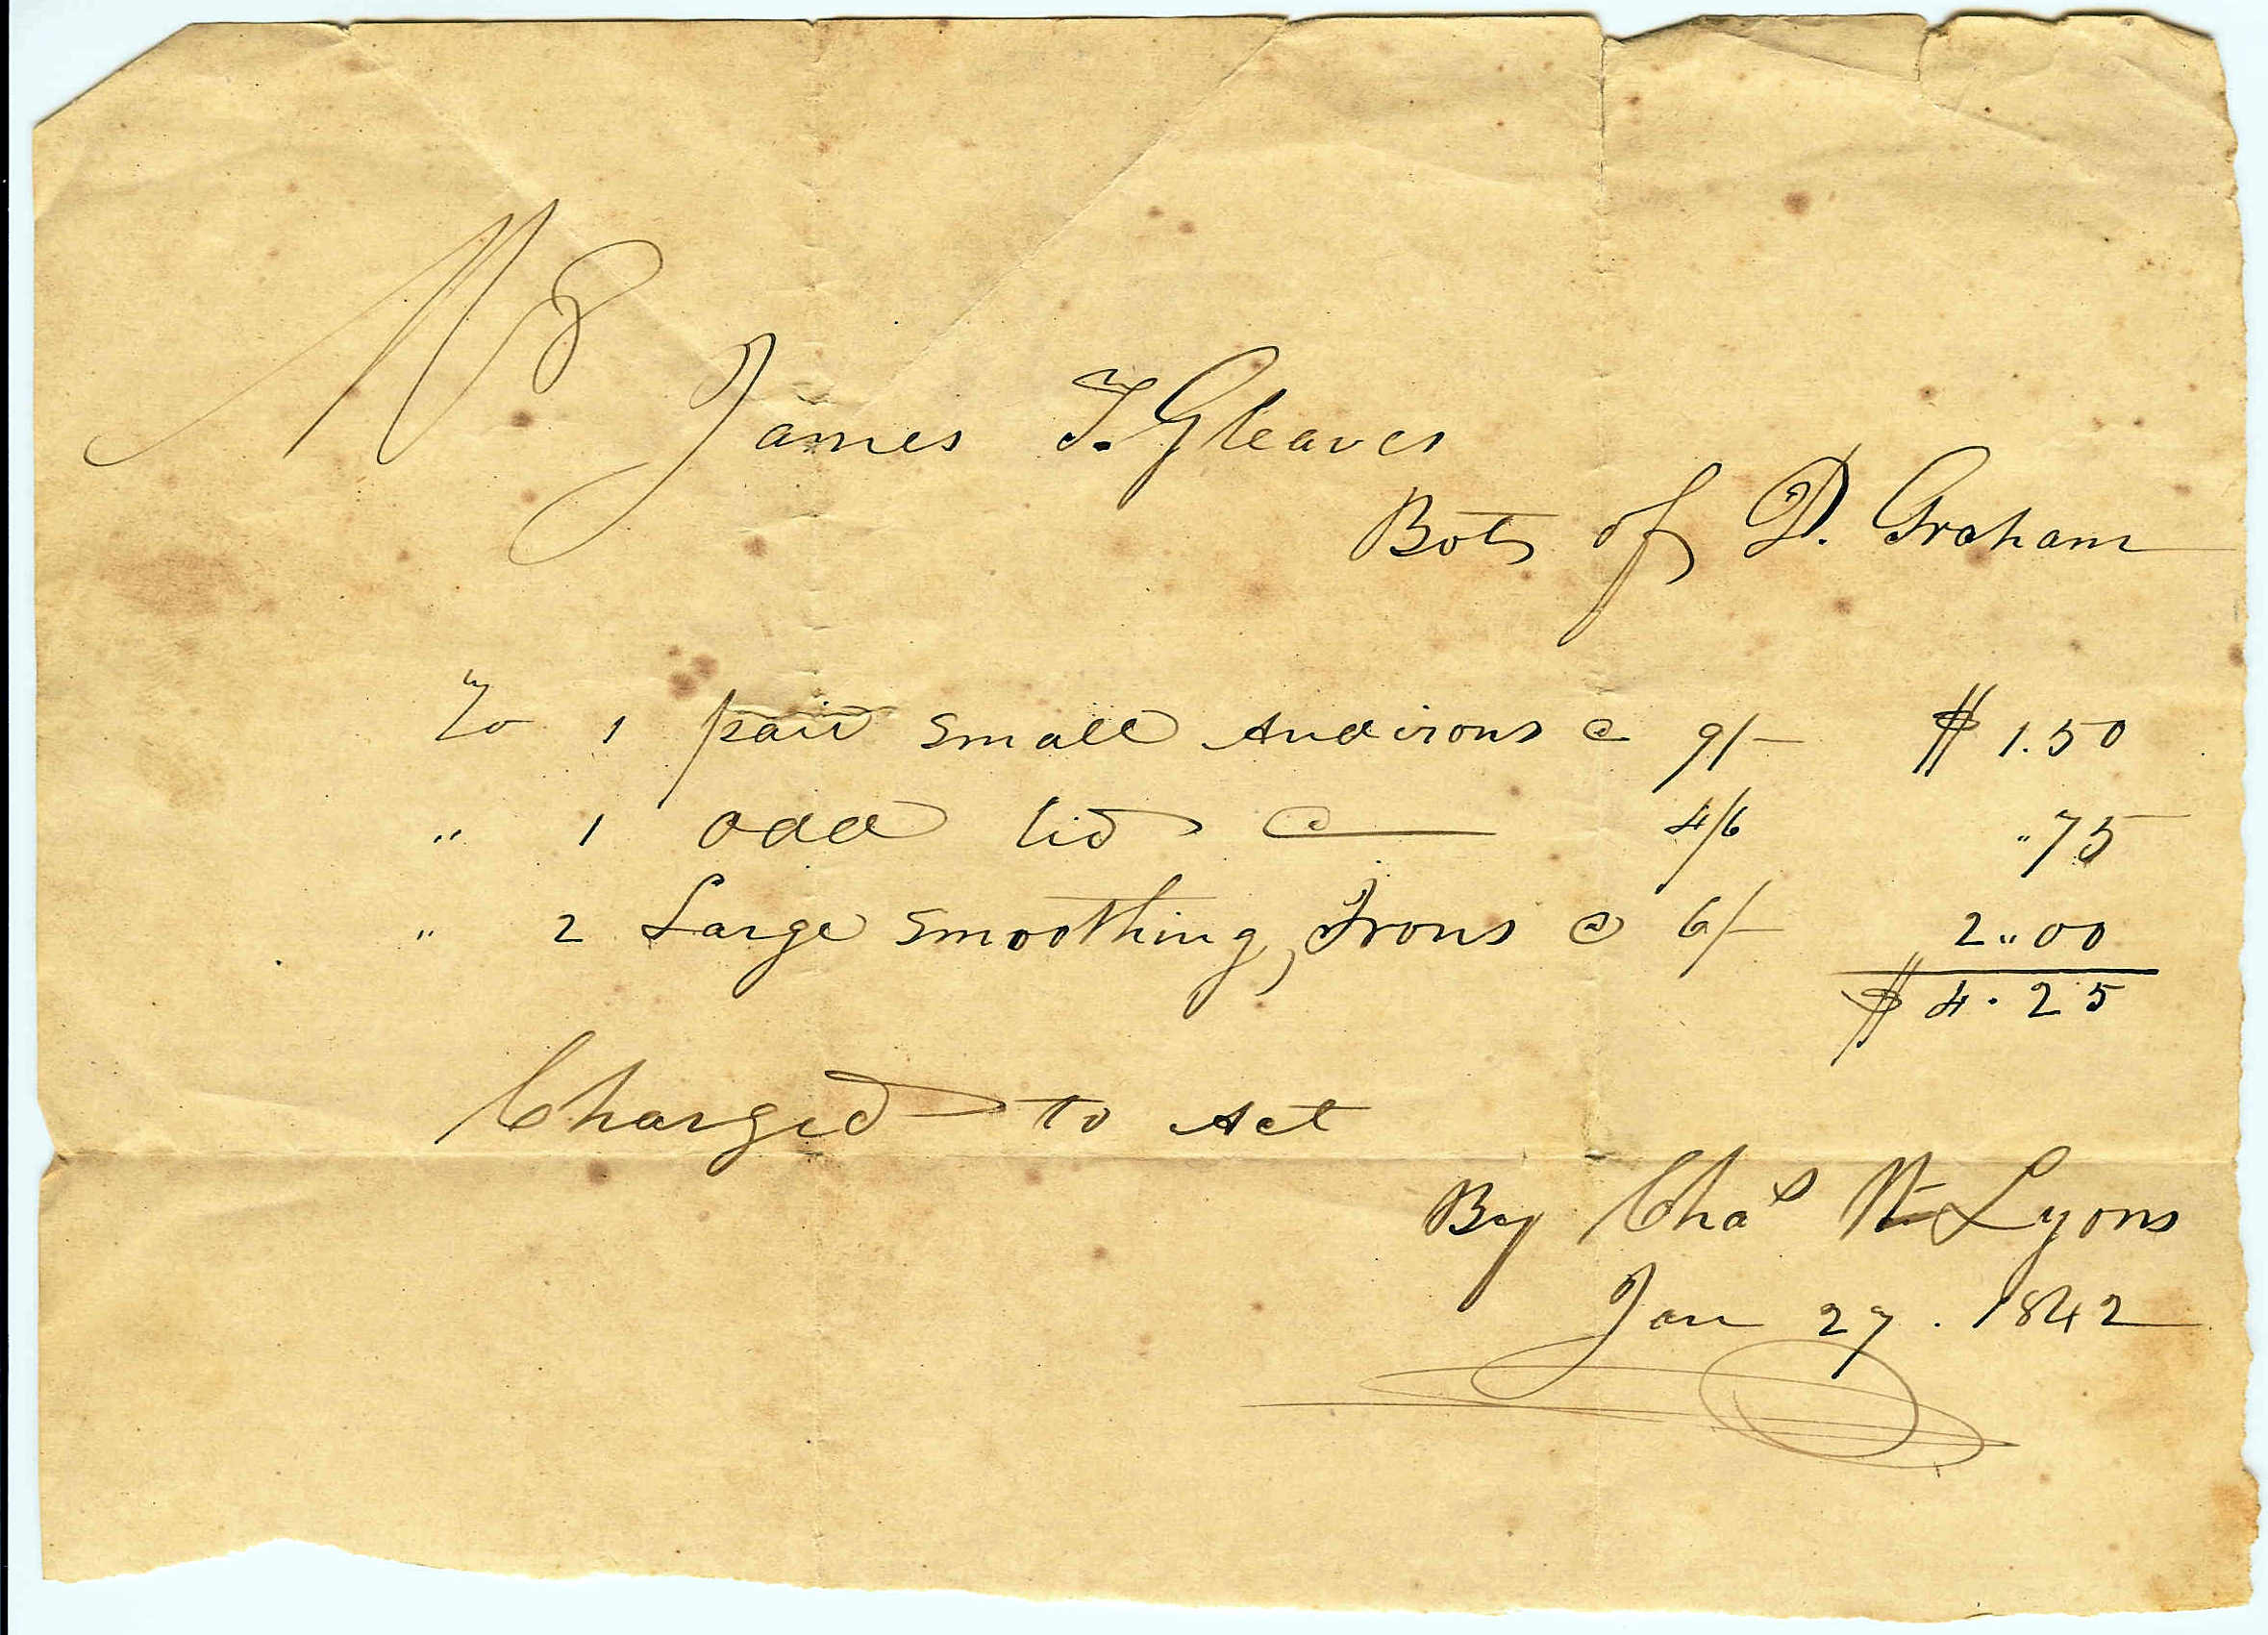 Mr
James T. Gleaves
Bot of D. Graham
To 1 pair small Andirons @ 9/- $ 1.50
" 1 odd lid @ 4/6 "75
" 2 Large Smoothing Irons @ 6/- 2"00
$ 4.25
Charged to Act
By Chas Lyons
Jan 27. 1842